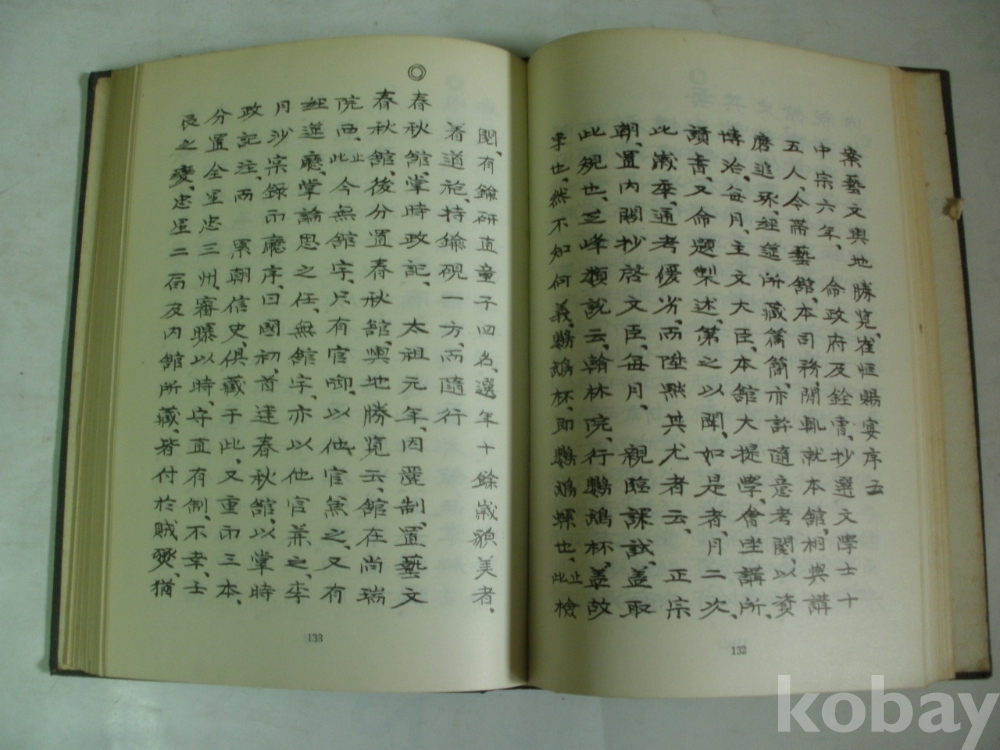 案藝文輿地勝覽、崔恒賜宴序云
中宗六年、命政府及銓曹、抄選文學士十
五人、令兼藝館、本司務閑、輒就本館、相與講
磨追琢、經筵所藏篇簡、亦許隨意考閱、以資
博洽、每月、主文大臣、本館大提學、會坐講所、
讀書、又命題製述、第之以聞、如是者、月二次、
此歲季、通考優劣、而陞黜其尤者云、正宗
朝、置內閣抄啓文臣、每月、親臨課試、蓋取
此規也、芝峰類說云、翰林院、行鸚鵡杯、蓋故
事也、然不知何義、鸚鵡杯、即鸚鵡螺也、此檢
閱、有鍮硯直童子四名、選年十餘歲貌美者、
着道袍、持鍮硯一方、而隨行
◎
春秋館、掌時政記、太祖元年、因麗制、置藝文
春秋館、後分置春秋館、輿地勝覽云、館在尚瑞
院西、此今無館宇、只有官啣、以他官兼之、又有
經筵廳、掌論思之任、無館宇、亦以他官兼之、李
月沙宗錄而廳序、曰國初、首建春秋館、以掌時
政記注、而累朝信史、俱藏于此、又重而三本、
分置全星忠三州、審曝以時、守直有制、不幸、壬
辰之變、忠星二﻿及內館所藏、皆付於賊燹、猶
133
132
kobay